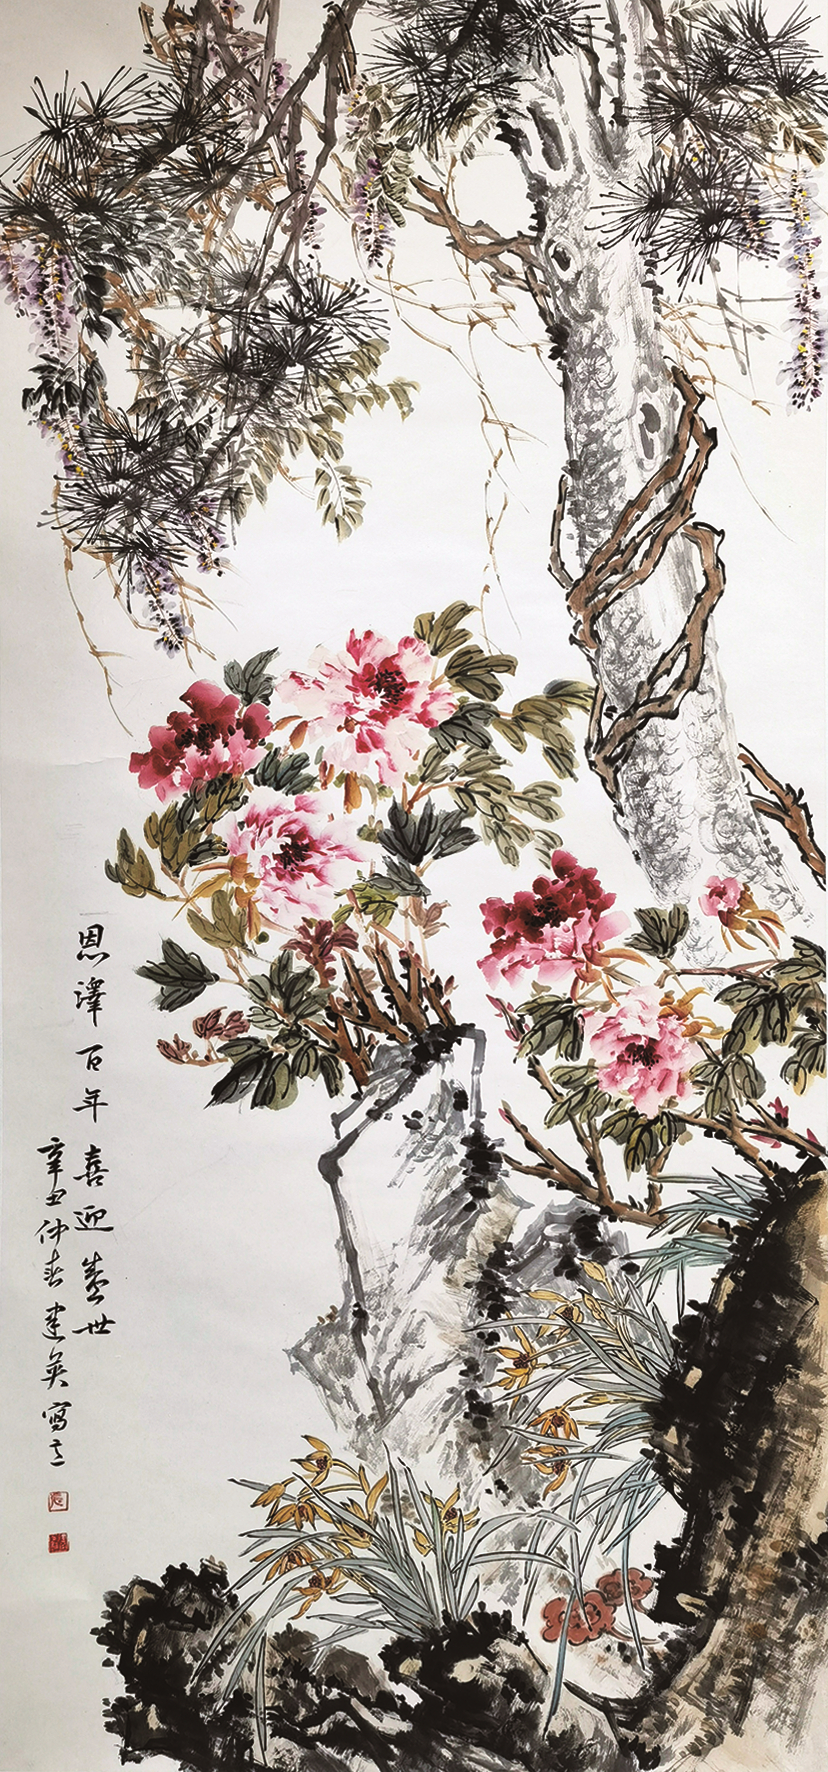 恩泽百年喜迎盛世
辛丑仲春建英写意